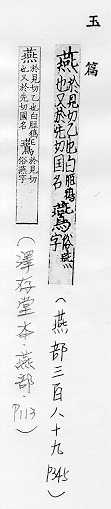 玉篇
燕於見切乙也白脰鴉也又於先切国名鷰俗燕字
（燕部三百八十九 P345）
燕於見切乙也白脰鴉也又於先切國名鷰於見切俗燕字
（澤存堂本·燕部·P113）